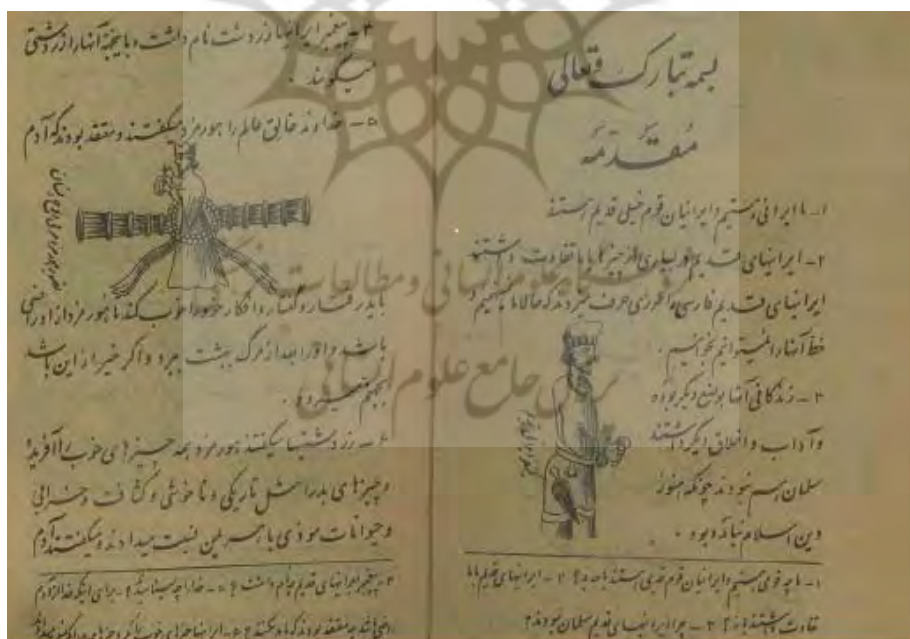 بسمه تبارک و تعالی
مقدمه
۱- ما ایرانی هستیم و ایرانیان قوم خیلی قدیم هستند
۲- ایرانیهای قدیم در بسیاری از چیزها با ما تفاوت داشتند
ایرانیهای قدیم فارسی را طوری حرف میزدند که حالا ما نمی‌فهمیم و
خط آنها را نمیتوانیم بخوانیم .
۳- زندگانی آنها بوضع دیگر بوده
و آداب و اخلاق دیگر داشتند
مسلمان هم نبودند چونکه هنوز
دین اسلام نیامده بود .
۱- ما چه قومی هستیم و ایرانیان قوم قدیمی هستند یا جدید؟ ۲- ایرانیهای قدیم با ما
تفاوت داشتند یا نه؟ ۳- چرا ایرانیهای قدیم مسلمان نبودند؟
۴- پیغمبر ایرانیها زردشت نام داشت و باینجهة آنها را زردشتی
میگویند .
۵- خداوند خالق عالم را هورمزد میگفتند و معتقد بودند که آدم
باید رفتار و گفتار و افکار خود را خوب کند تا هورمزد از او راضی
باشد و او را بعد از مرگ بهشت ببرد و اگر غیر از این باشد
بجهنم میرود .
۶- زردشتیها میگفتند هورمزد همه چیزهای خوب را آفریده
و چیزهای بد را مثل تاریکی و ناخوشی و کثافت و خرابی
و حیوانات موذی باهریمن نسبت میدادند و میگفتند آدم
۴- پیغمبر ایرانیهای قدیم چه نام داشت؟ ۵- خدا را چه مینامیدند؟ برای اینکه خدا از آدم
راضی باشد معتقد بودند که باید چه بکند؟ ۶- ایرانیها چیزهای خوب
پژوهشگاه علوم انسانی و مطالعات فرهنگی
پرتال جامع علوم انسانی